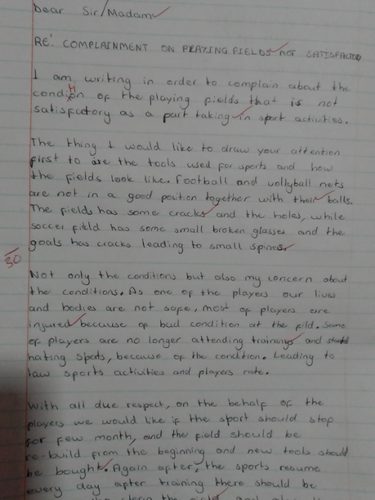 Dear Sir/Madam
RE: COMPLAINMENT ON PRAYING FIELDS NOT SATISFACTORY
I am writing in order to complain about the
condition of the playing fields that is not
satisfactory as a part taking in sport activities.
The thing I would like to draw your attention
first to are the tools used for sports and how
the fields look like. Football and vollyball nets
are not in a good position together with their balls.
The fields has some cracks and the holes, while
soccer field has some small broken glasses and the
goals has cracks leading to small spines.
30
Not only the conditions but also my concern about
the conditions. As one of the players our lives
and bodies are not safe, most of players are
injured because of bad condition at the fild. Some
of players are no longer attending trainings and
hating spots, because of the condition. Leading to
law sports activities and players rate.
With all due respect, on the behalf of the
players we would like if the sport should stop
for few month, and the field should be
re-build from the beginning and new tools should
be bought. Again after, the sports resume
every day after training there should be